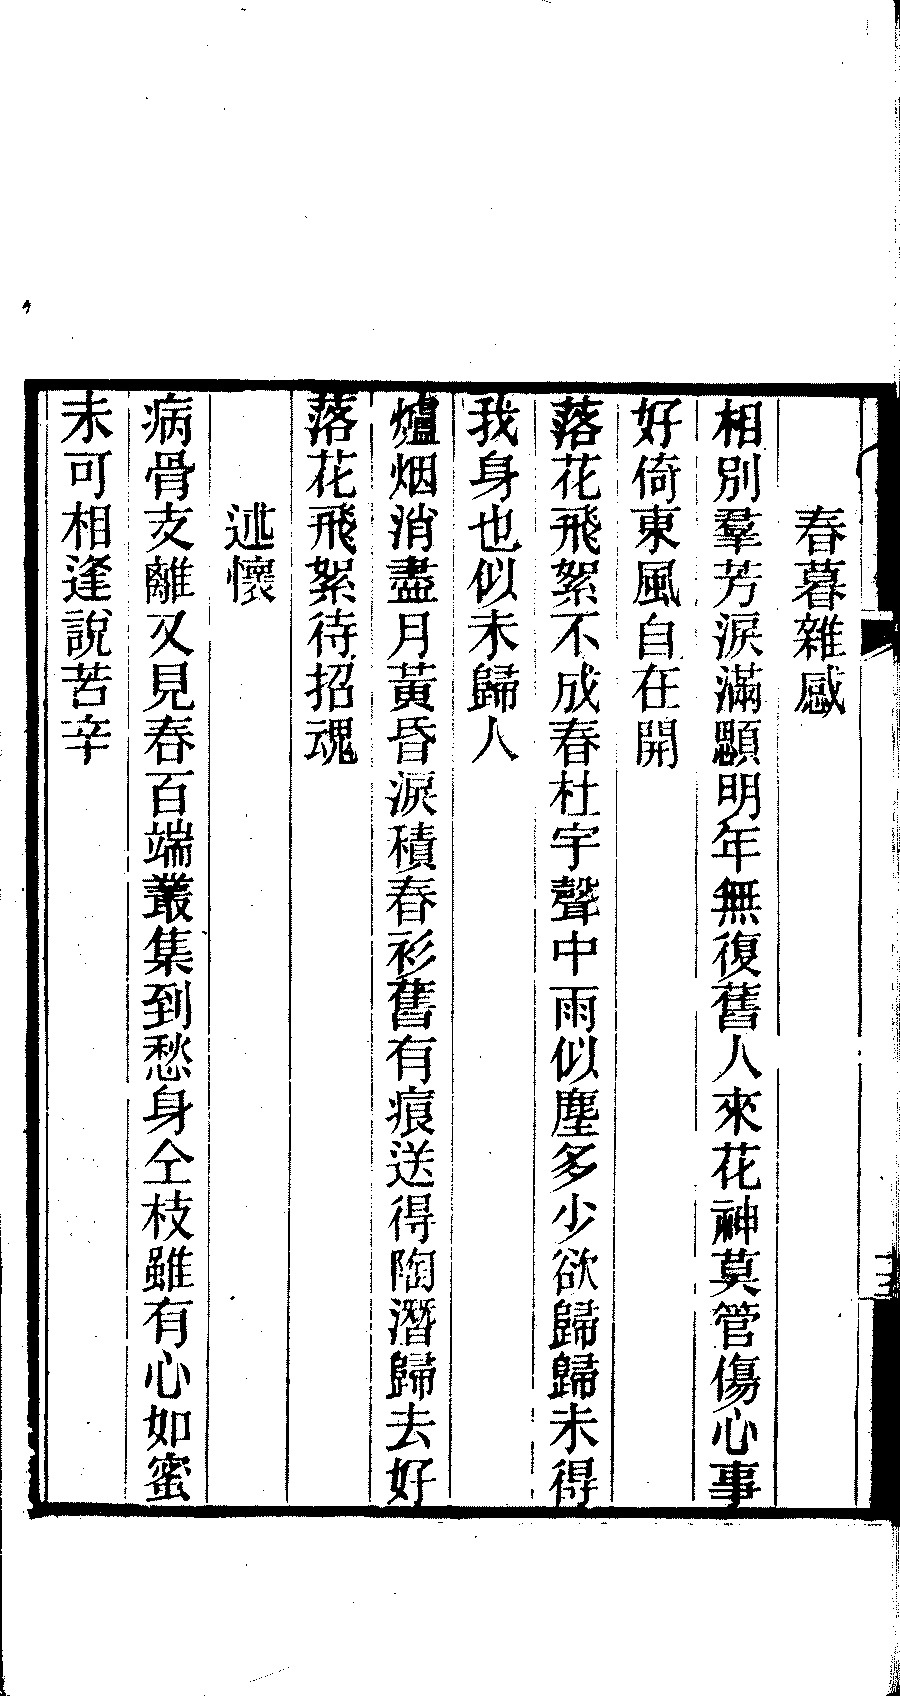 春暮雜感
相別羣芳淚滿顋明年無復舊人來花神莫管傷心事
好倚東風自在開
落花飛絮不成春杜宇聲中雨似塵多少欲歸歸未得
我身也似未歸人
爐烟消盡月黃昏淚積春衫舊有痕送得陶潛歸去好
落花飛絮待招魂
述懷
病骨支離又見春百端叢集到愁身仝枝雖有心如蜜
未可相逢說苦辛